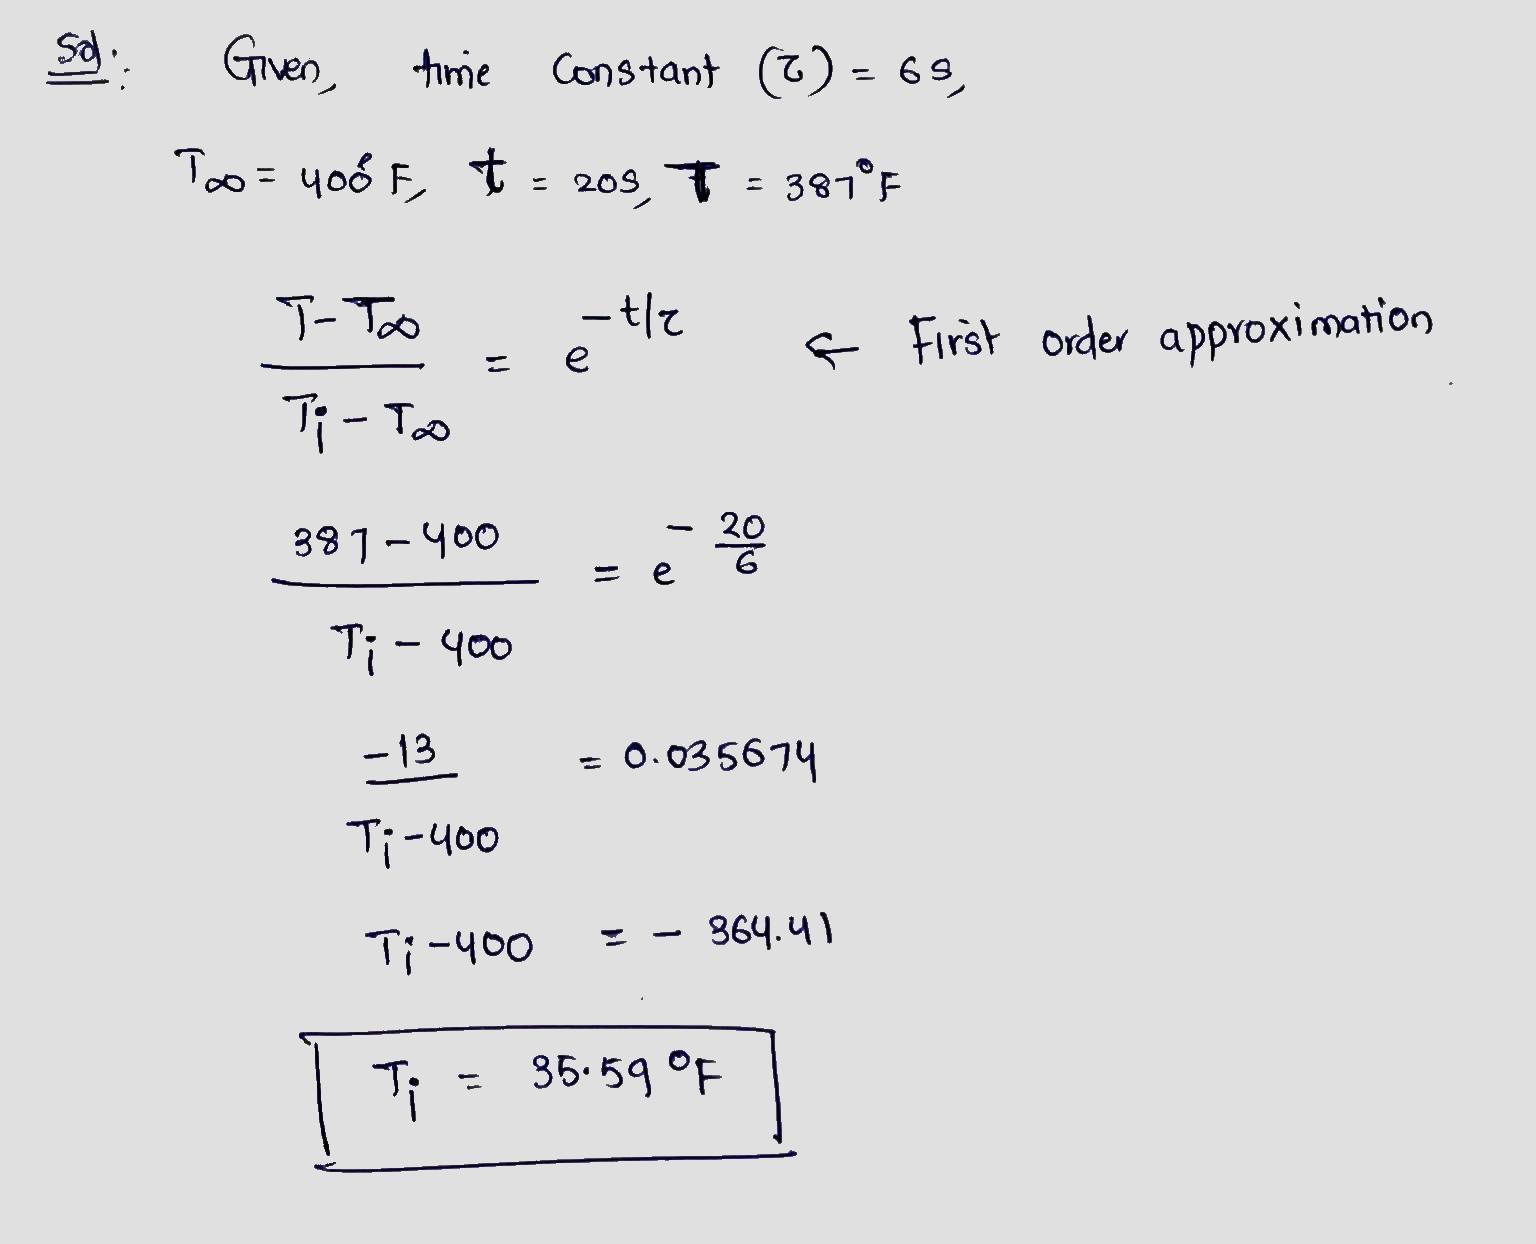 Sol: Given, time Constant (τ) = 6s,
T∞ = 400° F, t = 20s, T = 387°F
(T - T∞) / (Ti - T∞) = e^(-t/τ) ← First order approximation
(387 - 400) / (Ti - 400) = e^(-20/6)
-13 / (Ti - 400) = 0.035674
Ti - 400 = - 364.41
Ti = 35.59 °F